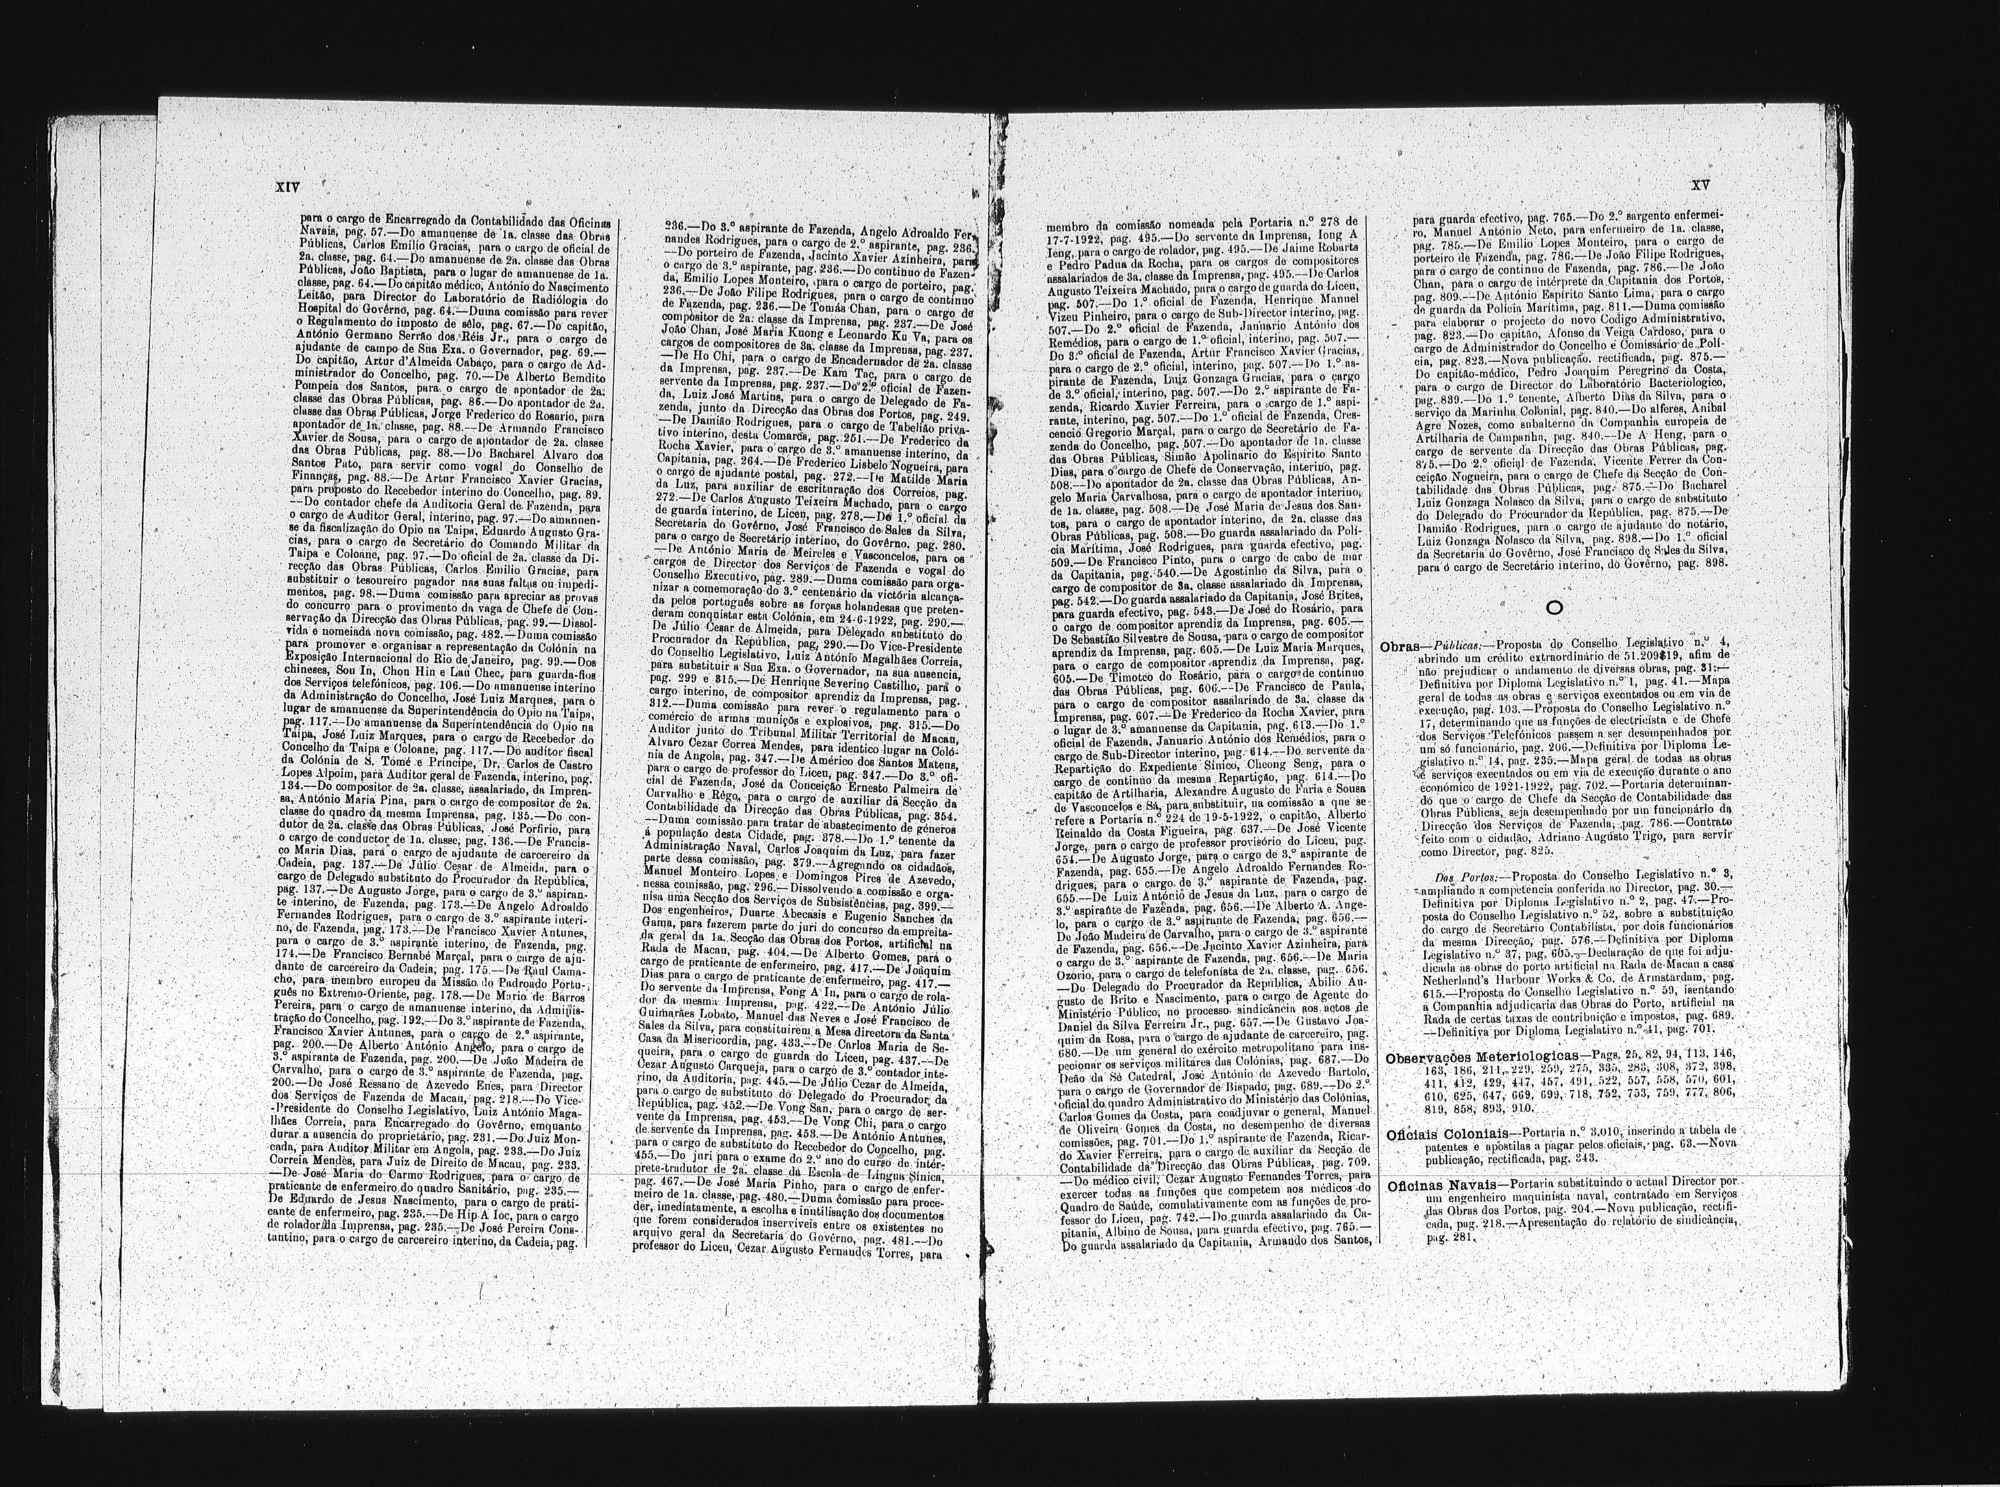 XIV
para o cargo de Encarregado da Contabilidade das Oficinas
Navais, pag. 57.—Do amanuense de 1a. classe das Obras
Públicas, Carlos Emílio Gracias, para o cargo de oficial de
2a. classe, pag. 64.—Do amanuense de 2a. classe das Obras
Públicas, João Baptista, para o lugar de amanuense de 1a.
classe, pag. 64.—Do capitão médico, António do Nascimento
Leitão, para Director do Laboratório de Radiólogia do
Hospital do Govêrno, pag. 64.—Duma comissão para rever
o Regulamento do imposto de sêlo, pag. 67.—Do capitão,
António Germano Serrão dos Réis Jr., para o cargo de
ajudante de campo de Sua Exa. o Governador, pag. 69.—
Do capitão, Artur d'Almeida Cabaço, para o cargo de Ad-
ministrador do Concelho, pag. 70.—De Alberto Bemdito
Pompeia dos Santos, para o cargo de apontador de 2a.
classe das Obras Públicas, pag. 86.—Do apontador de 2a.
classe das Obras Públicas, Jorge Frederico do Rosario, para
apontador de 1a. classe, pag. 88.—De Armando Francisco
Xavier de Sousa, para o cargo de apontador de 2a. classe
das Obras Públicas, pag. 88.—Do Bacharel Alvaro dos
Santos Pato, para servir como vogal do Conselho de
Finanças, pag. 88.—De Artur Francisco Xavier Gracias,
para proposto do Recebedor interino do Concelho, pag. 89.
—Do contador chefe da Auditoria Geral de Fazenda, para
o cargo de Auditor Geral, interino, pag. 97.—Do amanuen-
se da fiscalização do Opio na Taipa, Eduardo Augusto Gra-
cias, para o cargo de Secretário do Comando Militar da
Taipa e Coloane, pag. 97.—Do oficial de 2a. classe da Di-
recção das Obras Públicas, Carlos Emílio Gracias, para
substituir o tesoureiro pagador nas suas faltas ou impedi-
mentos, pag. 98.—Duma comissão para apreciar as provas
do concurro para o provimento da vaga de Chefe de Con-
servação da Direcção das Obras Públicas, pag. 99.—Dissol-
vida e nomeiada nova comissão, pag. 482.—Duma comissão
para promover e organisar a representação da Colónia na
Exposição Internacional do Rio de Janeiro, pag. 99.—Dos
chineses, Sou In, Chon Hin e Lau Chec, para guarda-fios
dos Serviços telefónicos, pag. 106.—Do amanuense interino
da Administração do Concelho, José Luiz Marques, para o
lugar de amanuense da Superintendência do Opio na Taipa,
pag. 117.—Do amanuense da Superintendência do Opio na
Taipa, José Luiz Marques, para o cargo de Recebedor do
Concelho da Taipa e Coloane, pag. 117.—Do auditor fiscal
da Colónia de S. Tómé e Príncipe, Dr. Carlos de Castro
Lopes Alpoim, para Auditor geral de Fazenda, interino, pag.
134.—Do compositor de 2a. classe, assalariado, da Impren-
sa, António Maria Pina, para o cargo de compositor de 2a.
classe do quadro da mesma Imprensa, pag. 135.—Do con-
dutor de 2a. classe das Obras Públicas, José Porfirio, para
o cargo de conductor de 1a. classe, pag. 136.—De Francis-
co Maria Dias, para o cargo de ajudante de carcereiro da
Cadeia, pag. 137.—De Júlio Cesar de Almeida, para o
cargo de Delegado substituto do Procurador da República,
pag. 137.—De Augusto Jorge, para o cargo de 3.º aspiran-
te interino, de Fazenda, pag. 173.—De Angelo Adroaldo
Fernandes Rodrigues, para o cargo de 3.º aspirante interi-
no, de Fazenda, pag. 173.—De Francisco Xavier Antunes,
para o cargo de 3.º aspirante interino, de Fazenda, pag.
174.—De Francisco Bernabé Marçal, para o cargo de aju-
dante de carcereiro da Cadeia, pag. 175.—De Raul Cama-
cho, para membro europeu da Missão do Padroado Portu-
guês no Extremo-Oriente, pag. 178.—De Mario de Barros
Pereira, para o cargo de amanuense interino, da Adminis-
tração do Concelho, pag. 192.—Do 3.º aspirante de Fazenda,
Francisco Xavier Antunes, para o cargo de 2.º aspirante,
pag. 200.—De Alberto António Angelo, para o cargo de
3.º aspirante de Fazenda, pag. 200.—De João Madeira de
Carvalho, para o cargo de 3.º aspirante de Fazenda, pag.
200.—De José Ressano de Azevedo Enes, para Director
dos Serviços de Fazenda de Macau, pag. 218.—Do Vice-
-Presidente do Conselho Legislativo, Luiz António Maga-
lhães Correia, para Encarregado do Govêrno, emquanto
durar a ausencia do proprietário, pag. 231.—Do Juiz Mon-
cada, para Auditor Militar em Angola, pag. 233.—Do Juiz
Correia Mendes, para Juiz de Direito de Macau, pag. 233.
—De José Maria do Carmo Rodrigues, para o cargo de
praticante de enfermeiro do quadro Sanitário, pag. 235.—
De Eduardo de Jesus Nascimento, para o cargo de prati-
cante de enfermeiro, pag. 235.—De Hip A Ioc, para o cargo
de rolador da Imprensa, pag. 235.—De José Pereira Cons-
tantino, para o cargo de carcereiro interino, da Cadeia, pag.
236.—Do 3.º aspirante de Fazenda, Angelo Adroaldo Fer-
nandes Rodrigues, para o cargo de 2.º aspirante, pag. 236.
—Do porteiro de Fazenda, Jacinto Xavier Azinheira, para
o cargo de 3.º aspirante, pag. 236.—Do contínuo de Fazen-
da, Emilio Lopes Monteiro, para o cargo de porteiro, pag.
236.—De João Filipe Rodrigues, para o cargo de contínuo
de Fazenda, pag. 236.—De Tomás Chan, para o cargo de
compositor de 2a. classe da Imprensa, pag. 237.—De José
João Chan, José Maria Kuong e Leonardo Ku Va, para os
cargos de compositores de 3a. classe da Imprensa, pag. 237.
—De Ho Chi, para o cargo de Encadernador de 2a. classe
da Imprensa, pag. 237.—De Kam Tac, para o cargo de
servente da Imprensa, pag. 237.—Do 2.º oficial de Fazen-
da, Luiz José Martins, para o cargo de Delegado de Fa-
zenda, junto da Direcção das Obras dos Portos, pag. 249.
—De Damião Rodrigues, para o cargo de Tabelião priva-
tivo interino, desta Comarca, pag. 251.—De Frederico da
Rocha Xavier, para o cargo de 3.º amanuense interino, da
Capitania, pag. 264.—De Frederico Lisbelo Nogueira, para
o cargo de ajudante postal, pag. 272.—De Matilde Maria
da Luz, para auxiliar de escrituração dos Correios, pag.
272.—De Carlos Augusto Teixeira Machado, para o cargo
de guarda interino, de Liceu, pag. 278.—Do 1.º oficial da
Secretaria do Govêrno, José Francisco de Sales da Silva,
para o cargo de Secretário interino, do Govêrno, pag. 280.
—De António Maria de Meireles e Vasconcelos, para os
cargos de Director dos Serviços de Fazenda e vogal do
Conselho Executivo, pag. 289.—Duma comissão para orga-
nizar a comemoração do 3.º centenário da victória alcança-
da pelos português sobre as forças holandesas que preten-
deram conquistar esta Colónia, em 24-6-1922, pag. 290.—
De Júlio Cesar de Almeida, para Delegado substituto do
Procurador da República, pag. 290.—Do Vice-Presidente
do Conselho Legislativo, Luiz António Magalhães Correia,
para substituir a Sua Exa. o Governador, na sua ausencia,
pag. 299 e 315.—De Henrique Severino Castilho, para o
cargo interino, de compositor aprendiz da Imprensa, pag.
312.—Duma comissão para rever o regulamento para o
comércio de armas muniçõs e explosivos, pag. 315.—Do
Auditor junto do Tribunal Militar Territorial de Macau,
Alvaro Cezar Correa Mendes, para identico lugar na Coló-
nia de Angola, pag. 347.—De Américo dos Santos Matens,
para o cargo de professor do Liceu, pag. 347.—Do 3.º ofi-
cial de Fazenda, José da Conceição Ernesto Palmeira de
Carvalho e Rêgo, para o cargo de auxiliar da Secção da
Contabilidade da Direcção das Obras Públicas, pag. 354.
—Duma comissão para tratar de abastecimento de géneros
á população desta Cidade, pag. 378.—Do 1.º tenente da
Administração Naval, Carlos Joaquim da Luz, para fazer
parte dessa comissão, pag. 379.—Agregando os cidadãos,
Manuel Monteiro Lopes e Domingos Pires de Azevedo,
nessa comissão, pag. 296.—Dissolvendo a comissão e orga-
nisa uma Secção dos Serviços de Subsistências, pag. 399.—
Dos engenheiros, Duarte Abecasis e Eugenio Sanches da
Gama, para fazerem parte do juri do concurso da empreita-
da geral da 1a. Secção das Obras dos Portos, artificial na
Rada de Macau, pag. 404.—De Alberto Gomes, para o
cargo de praticante de enfermeiro, pag. 417.—De Joaquim
Dias para o cargo de praticante de enfermeiro, pag. 417.—
Do servente da Imprensa, Fong A In, para o cargo de rola-
dor da mesma Imprensa, pag. 422.—De António Júlio
Guimarães Lobato, Manuel das Neves e José Francisco de
Sales da Silva, para constituirem a Mesa directora da Santa
Casa da Misericordia, pag. 433.—De Carlos Maria de Se-
queira, para o cargo de guarda do Liceu, pag. 437.—De
Cezar Augusto Carqueja, para o cargo de 3.º contador inte-
rino, da Auditoria, pag. 445.—De Júlio Cezar de Almeida,
para o cargo de substituto do Delegado do Procurador da
República, pag. 452.—De Vong San, para o cargo de ser-
vente da Imprensa, pag. 453.—De Vong Chi, para o cargo
de servente da Imprensa, pag. 453.—De António Antunes,
para o cargo de substituto do Recebedor do Concelho, pag.
455.—Do juri para o exame do 2.º ano do curso de intér-
prete-tradutor de 2a. classe da Escola de Língua Sínica,
pag. 467.—De José Maria Pinho, para o cargo de enfer-
meiro de 1a. classe, pag. 480.—Duma comissão para proce-
der, imediatamente, a escolha e inutilisação dos documentos
que forem considerados inserviveis entre os existentes no
arquivo geral da Secretaria do Govêrno, pag. 481.—Do
professor do Liceu, Cezar Augusto Fernandes Torres, para
XV
membro da comissão nomeada pela Portaria n.º 278 de
17-7-1922, pag. 495.—Do servente da Imprensa, Iong A
Ieng, para o cargo de rolador, pag. 495.—De Jaime Robarts
e Pedro Padua da Rocha, para os cargos de compositores
assalariados de 3a. classe da Imprensa, pag. 495.—De Carlos
Augusto Teixeira Machado, para o cargo de guarda do Liceu,
pag. 507.—Do 1.º oficial de Fazenda, Henrique Manuel
Vizeu Pinheiro, para o cargo de Sub-Director interino, pag.
507.—Do 2.º oficial de Fazenda, Januario António dos
Remédios, para o cargo de 1.º oficial, interino, pag. 507.—
Do 3.º oficial de Fazenda, Artur Francisco Xavier Gracias,
para o cargo de 2.º oficial, interino, pag. 507.—Do 1.º as-
pirante de Fazenda, Luiz Gonzaga Gracias, para o cargo
de 3.º oficial, interino, pag. 507.—Do 2.º aspirante de Fa-
zenda, Ricardo Xavier Ferreira, para o cargo de 1.º aspi-
rante, interino, pag. 507.—Do 1.º oficial de Fazenda, Cres-
cencio Gregorio Marçal, para o cargo de Secretário de Fa-
zenda do Concelho, pag. 507.—Do apontador de 1a. classe
das Obras Públicas, Simão Apolinario do Espírito Santo
Dias, para o cargo de Chefe de Conservação, interino, pag.
508.—Do apontador de 2a. classe das Obras Públicas, An-
gelo Maria Carvalhosa, para o cargo de apontador interino,
de 1a. classe, pag. 508.—De José Maria de Jesus dos San-
tos, para o cargo de apontador interino, de 2a. classe das
Obras Públicas, pag. 508.—Do guarda assalariado da Polí-
cia Marítima, José Rodrigues, para guarda efectivo, pag.
509.—De Francisco Pinto, para o cargo de cabo de mar
da Capitania, pag. 540.—De Agostinho da Silva, para o
cargo de compositor de 3a. classe assalariado da Imprensa,
pag. 542.—Do guarda assalariado da Capitania, José Brites,
para guarda efectivo, pag. 543.—De José do Rosário, para
o cargo de compositor aprendiz da Imprensa, pag. 605.—
De Sebastião Silvestre de Sousa, para o cargo de compositor
aprendiz da Imprensa, pag. 605.—De Luiz Maria Marques,
para o cargo de compositor aprendiz da Imprensa, pag.
605.—De Timoteo do Rosário, para o cargo de contínuo
das Obras Públicas, pag. 606.—De Francisco de Paula,
para o cargo de compositor assalariado de 3a. classe da
Imprensa, pag. 607.—De Frederico da Rocha Xavier, para
o lugar de 3.º amanuense da Capitania, pag. 613.—Do 1.º
oficial de Fazenda, Januario António dos Remédios, para o
cargo de Sub-Director interino, pag. 614.—Do servente da
Repartição do Expediente Sínico, Cheong Seng, para o
cargo de contínuo da mesma Repartição, pag. 614.—Do
capitão de Artilharia, Alexandre Augusto de Faria e Sousa
de Vasconcelos e Sá, para substituir, na comissão a que se
refere a Portaria n.º 224 de 19-5-1922, o capitão, Alberto
Reinaldo da Costa Figueira, pag. 637.—De José Vicente
Jorge, para o cargo de professor provisório do Liceu, pag.
654.—De Augusto Jorge, para o cargo de 3.º aspirante de
Fazenda, pag. 655.—De Angelo Adroaldo Fernandes Ro-
drigues, para o cargo de 3.º aspirante de Fazenda, pag.
655.—De Luiz António de Jesus da Luz, para o cargo de
3.º aspirante de Fazenda, pag. 656.—De Alberto A. Ange-
lo, para o cargo de 3.º aspirante de Fazenda, pag. 656.—
De João Madeira de Carvalho, para o cargo de 3.º aspirante
de Fazenda, pag. 656.—De Jacinto Xavier Azinheira, para
o cargo de 3.º aspirante de Fazenda, pag. 656.—De Maria
Ozório, para o cargo de telefonista de 2a. classe, pag. 656.
—Do Delegado do Procurador da República, Abílio Au-
gusto de Brito e Nascimento, para o cargo de Agente do
Ministério Público, no processo sindicância aos actos de
Daniel da Silva Ferreira Jr., pag. 657.—De Gustavo Joa-
quim da Rosa, para o cargo de ajudante de carcereiro, pag.
680.—De um general do exército metropolitano para ins-
pecionar os serviços militares das Colónias, pag. 687.—Do
Deão da Sé Catedral, José António de Azevedo Bartolo,
para o cargo de Governador de Bispado, pag. 689.—Do 2.º
oficial do quadro Administrativo do Ministério das Colónias,
Carlos Gomes da Costa, para coadjuvar o general, Manuel
de Oliveira Gomes da Costa, no desempenho de diversas
comissões, pag. 701.—Do 1.º aspirante de Fazenda, Ricar-
do Xavier Ferreira, para o cargo de auxiliar da Secção de
Contabilidade da Direcção das Obras Públicas, pag. 709.
—Do médico civil, Cezar Augusto Fernandes Torres, para
exercer todas as funções que competem aos médicos do
Quadro de Saúde, comulativamente com as funções de pro-
fessor do Liceu, pag. 742.—Do guarda assalariado da Ca-
pitania, Albino de Sousa, para guarda efectivo, pag. 765.—
Do guarda assalariado da Capitania, Armando dos Santos,
para guarda efectivo, pag. 765.—Do 2.º sargento enfermei-
ro, Manuel António Neto, para enfermeiro de 1a. classe,
pag. 785.—De Emilio Lopes Monteiro, para o cargo de
porteiro de Fazenda, pag. 786.—De João Filipe Rodrigues,
para o cargo de contínuo de Fazenda, pag. 786.—De João
Chan, para o cargo de intérprete da Capitania dos Portos,
pag. 809.—De António Espírito Santo Lima, para o cargo
de guarda da Polícia Marítima, pag. 811.—Duma comissão
para elaborar o projecto do novo Codigo Administrativo,
pag. 823.—Do capitão, Afonso da Veiga Cardoso, para o
cargo de Administrador do Concelho e Comissário de Polí-
cia, pag. 823.—Nova publicação, rectificada, pag. 875.—
Do capitão-médico, Pedro Joaquim Peregrino da Costa,
para o cargo de Director do Laboratório Bacteriologico,
pag. 839.—Do 1.º tenente, Alberto Dias da Silva, para o
serviço da Marinha Colonial, pag. 840.—Do alferes, Anibal
Agre Nozes, como subalterno da Companhia europeia de
Artilharia de Campanha, pag. 840.—De A Heng, para o
cargo de servente da Direcção das Obras Públicas, pag.
875.—Do 2.º oficial de Fazenda, Vicente Ferrer da Con-
ceição Nogueira, para o cargo de Chefe da Secção de Con-
tabilidade das Obras Públicas, pag. 875.—Do Bacharel
Luiz Gonzaga Nolasco da Silva, para o cargo de substituto
do Delegado do Procurador da República, pag. 875.—De
Damião Rodrigues, para o cargo de ajudante do notário,
Luiz Gonzaga Nolasco da Silva, pag. 898.—Do 1.º oficial
da Secretaria do Govêrno, José Francisco de Sales da Silva,
para o cargo de Secretário interino, do Govêrno, pag. 898.
O
Obras—Públicas:—Proposta do Conselho Legislativo n.º 4,
abrindo um crédito extraordinário de 51.209$19, afim de
não prejudicar o andamento de diversas obras, pag. 31.—
Definitiva por Diploma Legislativo n.º 1, pag. 41.—Mapa
geral de todas as obras e serviços executados ou em via de
execução, pag. 103.—Proposta do Conselho Legislativo n.º
17, determinando que as funções de electricista e de Chefe
dos Serviços Telefónicos passem a ser desempenhados por
um só funcionário, pag. 206.—Definitiva por Diploma Le-
gislativo n.º 14, pag. 235.—Mapa geral de todas as obras
e serviços executados ou em via de execução durante o ano
económico de 1921-1922, pag. 702.—Portaria determinan-
do que o cargo de Chefe da Secção de Contabilidade das
Obras Públicas, seja desempenhado por um funcionário da
Direcção dos Serviços de Fazenda, pag. 786.—Contrato
feito com o cidadão, Adriano Augusto Trigo, para servir
como Director, pag. 825.
Dos Portos:—Proposta do Conselho Legislativo n.º 3,
ampliando a competencia conferida ao Director, pag. 30.—
Definitiva por Diploma Legislativo n.º 2, pag. 47.—Pro-
posta do Conselho Legislativo n.º 52, sobre a substituição
do cargo de Secretário Contabilista, por dois funcionários
da mesma Direcção, pag. 576.—Definitiva por Diploma
Legislativo n.º 37, pag. 605.—Declaração de que foi adju-
dicada as obras do porto artificial na Rada de Macau a casa
Netherland's Harbour Works & Co. de Armstardam, pag.
615.—Proposta do Conselho Legislativo n.º 59, isentando
a Companhia adjudicaria das Obras do Porto, artificial na
Rada de certas taxas de contribuição e impostos, pag. 689.
—Definitiva por Diploma Legislativo n.º 41, pag. 701.
Observações Meteriologicas—Pags. 25, 82, 94, 113, 146,
163, 186, 211, 229, 259, 275, 335, 283, 308, 372, 398,
411, 412, 429, 447, 457, 491, 522, 557, 558, 570, 601,
610, 625, 647, 669, 699, 718, 752, 753, 759, 777, 806,
819, 858, 893, 910.
Oficiais Coloniais—Portaria n.º 3,010, inserindo a tabela de
patentes e apostilas a pagar pelos oficiais, pag. 63.—Nova
publicação, rectificada, pag. 343.
Oficinas Navais—Portaria substituindo o actual Director por
um engenheiro maquinista naval, contratado em Serviços
das Obras dos Portos, pag. 204.—Nova publicação, rectifi-
cada, pag. 218.—Apresentação do relatório de sindicância,
pag. 281.